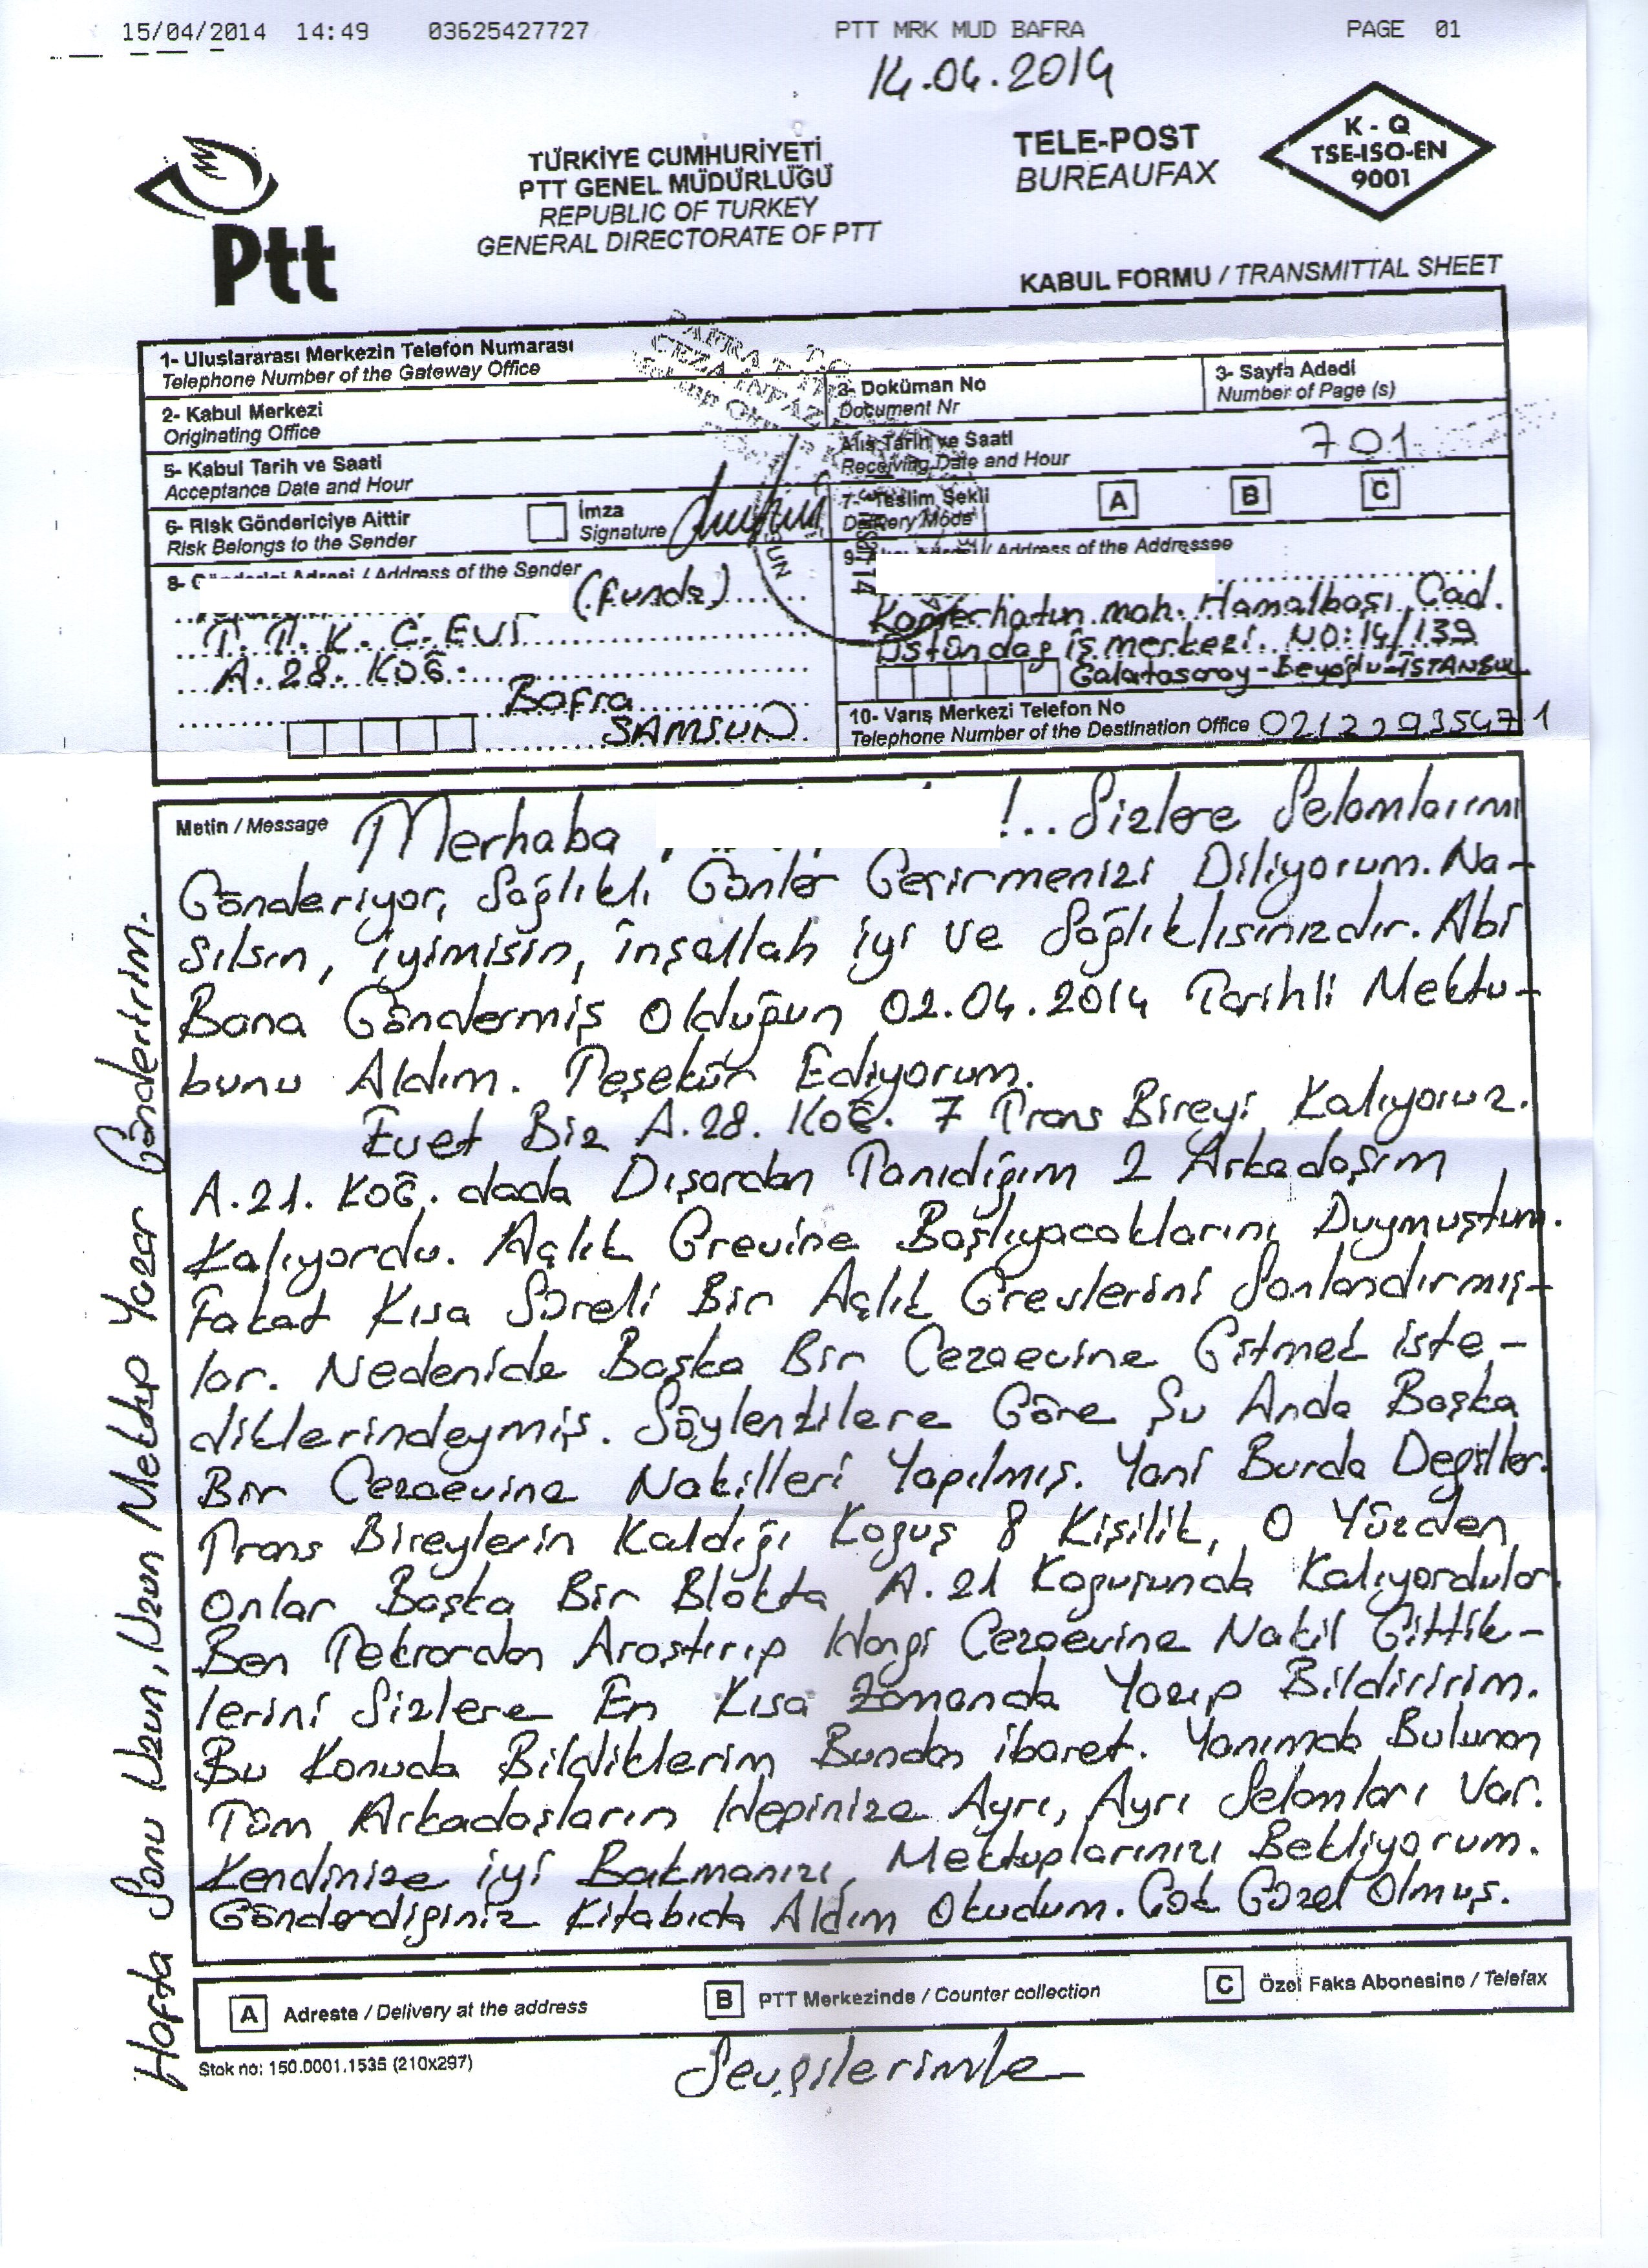 15/04/2014 14:49 03625427727 PTT MRK MUD BAFRA PAGE 01
14.04.2014
Ptt
TÜRKİYE CUMHURİYETİ
PTT GENEL MÜDÜRLÜĞÜ
REPUBLIC OF TURKEY
GENERAL DIRECTORATE OF PTT
TELE-POST
BUREAUFAX
K - Q
TSE-ISO-EN
9001
KABUL FORMU / TRANSMITTAL SHEET
1- Uluslararası Merkezin Telefon Numarası
Telephone Number of the Gateway Office
2- Kabul Merkezi
Originating Office
Doküman No
Document Nr
3- Sayfa Adedi
Number of Page (s)
5- Kabul Tarih ve Saati
Acceptance Date and Hour
Alış Tarih ve Saati
Receiving Date and Hour
701
6- Risk Göndericiye Aittir
Risk Belongs to the Sender
İmza
Signature
7- Teslim Şekli
Delivery Mode
A B C
8- Address of the Sender
(funda)
T. T. K. C. EVİ
A. 28. KOĞ.
Bafra
SAMSUN
9- Address of the Addressee
Katip mah. Hamalbaşı Cad.
Üstündag iş merkezi. NO: 14/139
Galatasaray-Beyoğlu-İSTANBUL
10- Varış Merkezi Telefon No
Telephone Number of the Destination Office 02122935471
Metin / Message
Merhaba !.. Sizlere Selamlarımı
Gönderiyor, Sağlıklı Günler Geçirmenizi Diliyorum. Na-
sılsın, iyimisin, inşallah iyi ve Sağlıklısınızdır. Abi
Bana Göndermiş Olduğun 02.04.2014 Tarihli Mektu-
bunu Aldım. Teşekür Ediyorum.
Evet Biz A.28. KOĞ. 7 Trans Bireyi Kalıyoruz.
A.21. KOĞ. dada Dışardan Tanıdığım 2 Arkadaşım
Kalıyordu. Açlık Grevine Başlıyacaklarını Duymuştum.
Fakat Kısa Süreli Bir Açlık Grevlerini Sonlandırmış-
lar. Nedenide Başka Bir Cezaevine Gitmek iste-
diklerindeymiş. Söylentilere Göre Şu Anda Başka
Bir Cezaevine Nakilleri Yapılmış. Yani Burda Degiller.
Trans Bireylerin Kaldığı Koguş 8 Kişilik, O Yüzden
Onlar Başka Bir Blokta A.21 Koguşunda Kalıyordular.
Ben Tekrardan Araştırıp Hangi Cezaevine Nakil Gittik-
lerini Sizlere En Kısa Zamanda Yazıp Bildiririm.
Bu Konuda Bildiklerim Bundan ibaret. Yanımda Bulunan
Tüm Arkadaşların Hepinize Ayrı, Ayrı Selamları Var.
Kendinize iyi Bakmanızı, Mektuplarınızı Bekliyorum.
Gönderdiginiz Kitabıda Aldım Okudum. Çok Güzel Olmuş.
Hafta Sonu Uzun, Uzun Mektup Yazar Gönderirim.
A Adreste / Delivery at the address
B PTT Merkezinde / Counter collection
C Özel Faks Abonesine / Telefax
Stok no: 150.0001.1535 (210x297)
Sevgilerimle